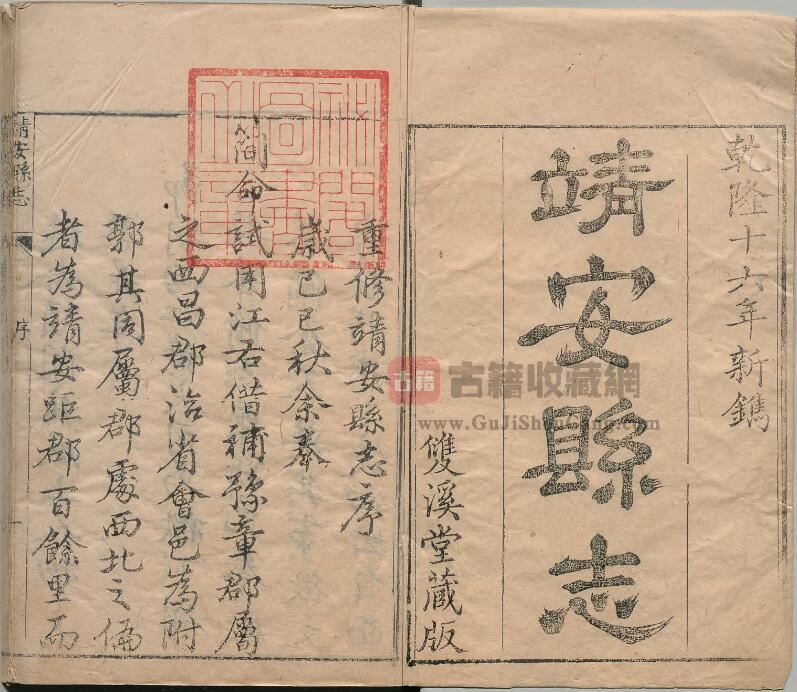 乾隆十六年新鐫
靖安縣志
雙溪堂藏版
重修靖安縣志序
歲己巳秋余奉
簡命試用江右借補豫章郡屬
之西昌郡治省會邑為附
郭其周屬郡處西北之偏
者為靖安距郡百餘里而
靖安縣志
序
古籍
古籍收藏網
www.GuJiShouCang.com